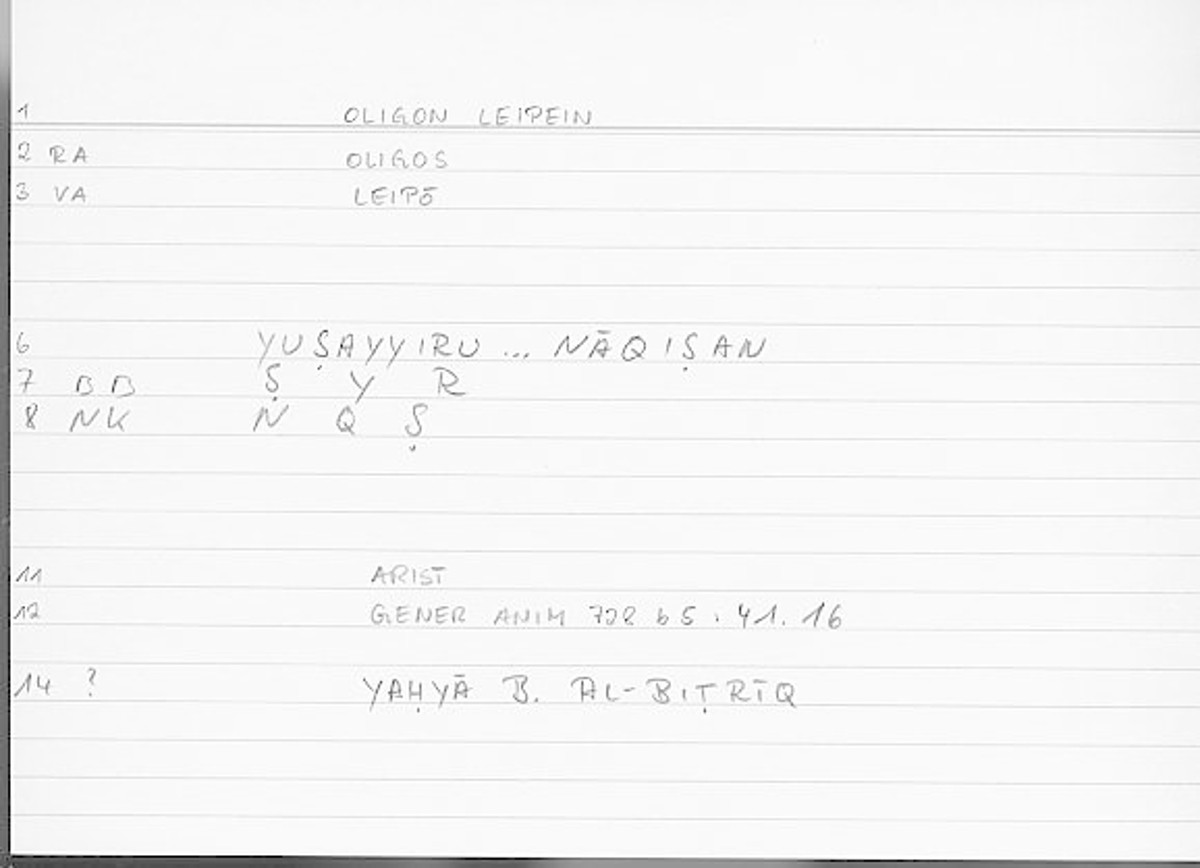 1 OLIGON LEIPEIN
2 RA OLIGOS
3 VA LEIPŌ
6 YUṢAYYIRU ... NĀQIṢAN
7 BB Ṣ Y R
8 NK N Q Ṣ
11 ARIST
12 GENER ANIM 728 b 5 . 41. 16
14 ? YAḤYĀ B. AL-BIṬRĪQ